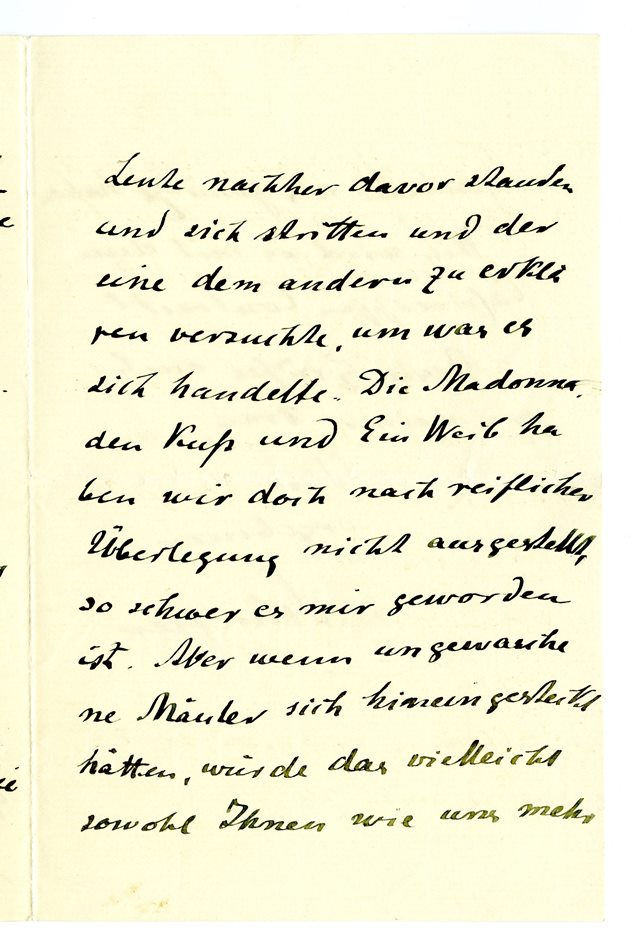 Leute nachher davor standen
und sich stritten und der
eine dem andern zu erklä
ren versuchte, um was es
sich handelte. Die Madonna,
den Kuß und Ein Weib ha
ben wir doch nach reiflicher
Überlegung nicht ausgestellt,
so schwer es mir geworden
ist. Aber wenn ungewasche
ne Mäuler sich hineingesteckt
hätten, würde das vielleicht
sowohl Ihnen wie uns mehr